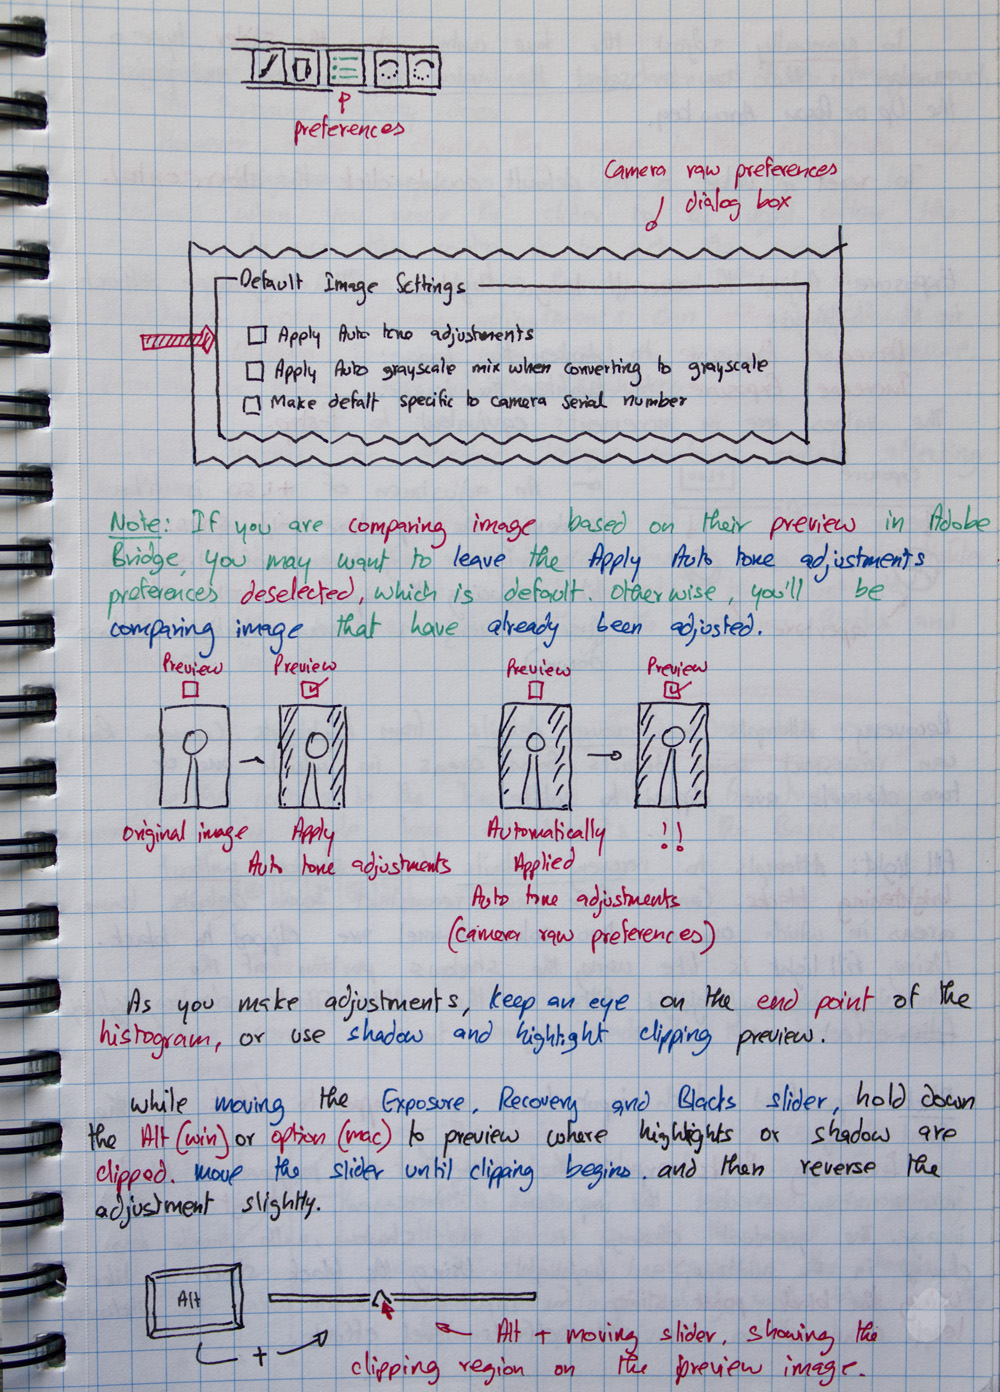 preferences
Camera raw preferences
dialog box
Default Image Settings
Apply Auto tone adjustments
Apply Auto grayscale mix when converting to grayscale
Make defalt specific to camera serial number
Note: If you are comparing image based on their preview in Adobe
Bridge, you may want to leave the Apply Auto tone adjustments
preferences deselected, which is default. Otherwise, you'll be
comparing image that have already been adjusted.
Preview Preview Preview Preview
original image Apply Automatically !!
Auto tone adjustments Applied
Auto tone adjustments
(Camera raw preferences)
As you make adjustments, keep an eye on the end point of the
histogram, or use shadow and highlight clipping preview.
while moving the Exposure, Recovery and Blacks slider, hold down
the Alt (win) or option (mac) to preview where highlights or shadow are
clipped. move the slider until clipping begins. and then reverse the
adjustment slightly.
Alt
+ Alt + moving slider, showing the
clipping region on the preview image.